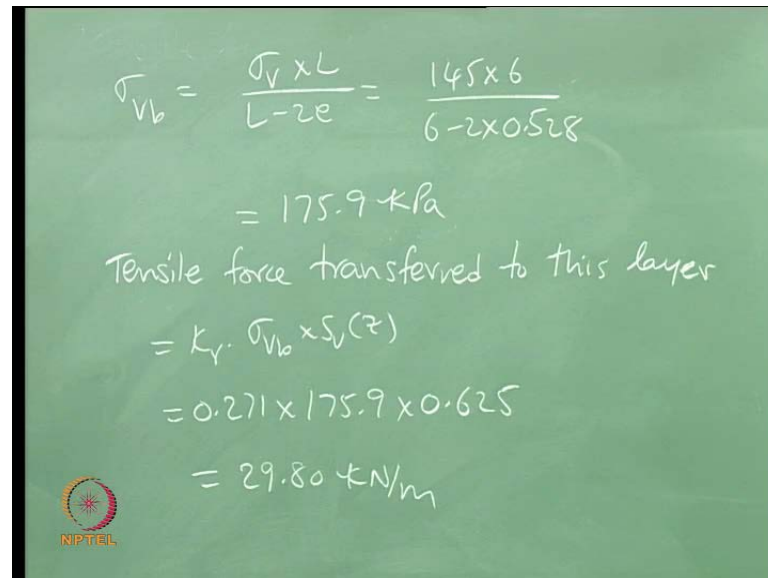 σVb = σv×L / L-2e = 145×6 / 6-2×0.528
= 175.9 kPa
Tensile force transferred to this layer
= Kr. σVb × Sv(z)
= 0.271×175.9×0.625
= 29.80 kN/m
NPTEL